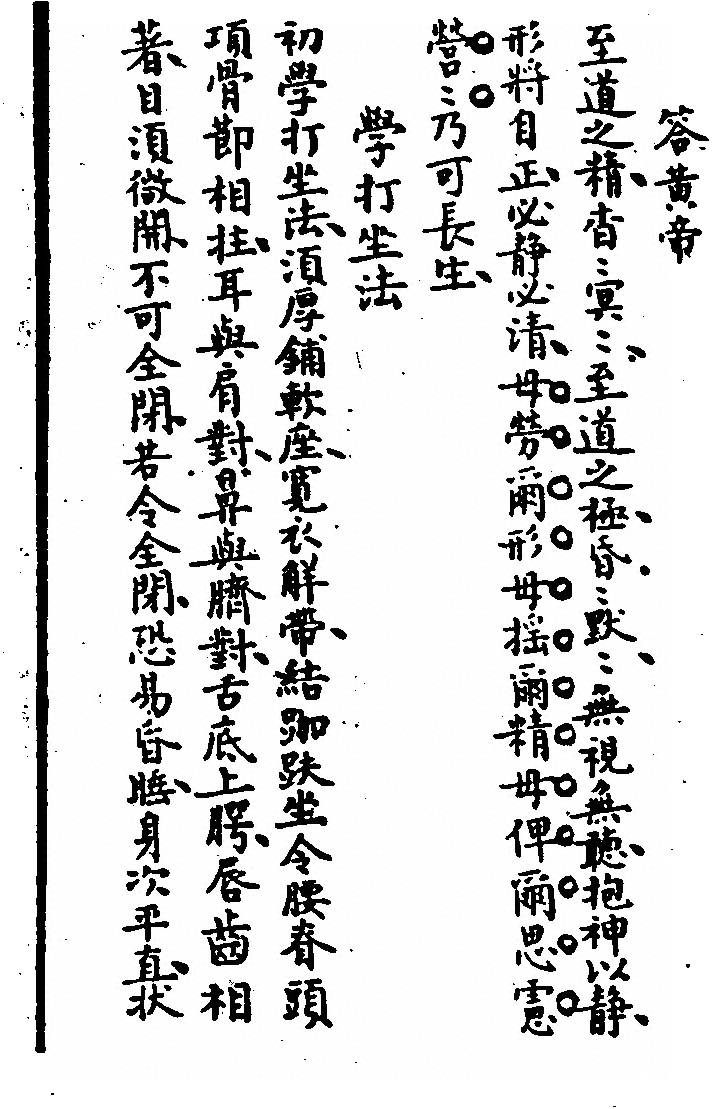 答黄帝
至道之精、杳〻冥〻、至道之極、昏〻默〻、無視無聽、抱神以静、
形將自正、必静必清、毋勞爾形毋揺爾精毋俾爾思慮
營〻乃可長生、
學打坐法
初學打坐法、須厚鋪軟座、寬衣解帶、結跏趺坐令腰脊頭
項骨節相拄、耳與肩對、鼻與臍對、舌底上腭、唇齒相
着、目須微開、不可全閉、若令全閉、恐易昏睡、身次平直、状